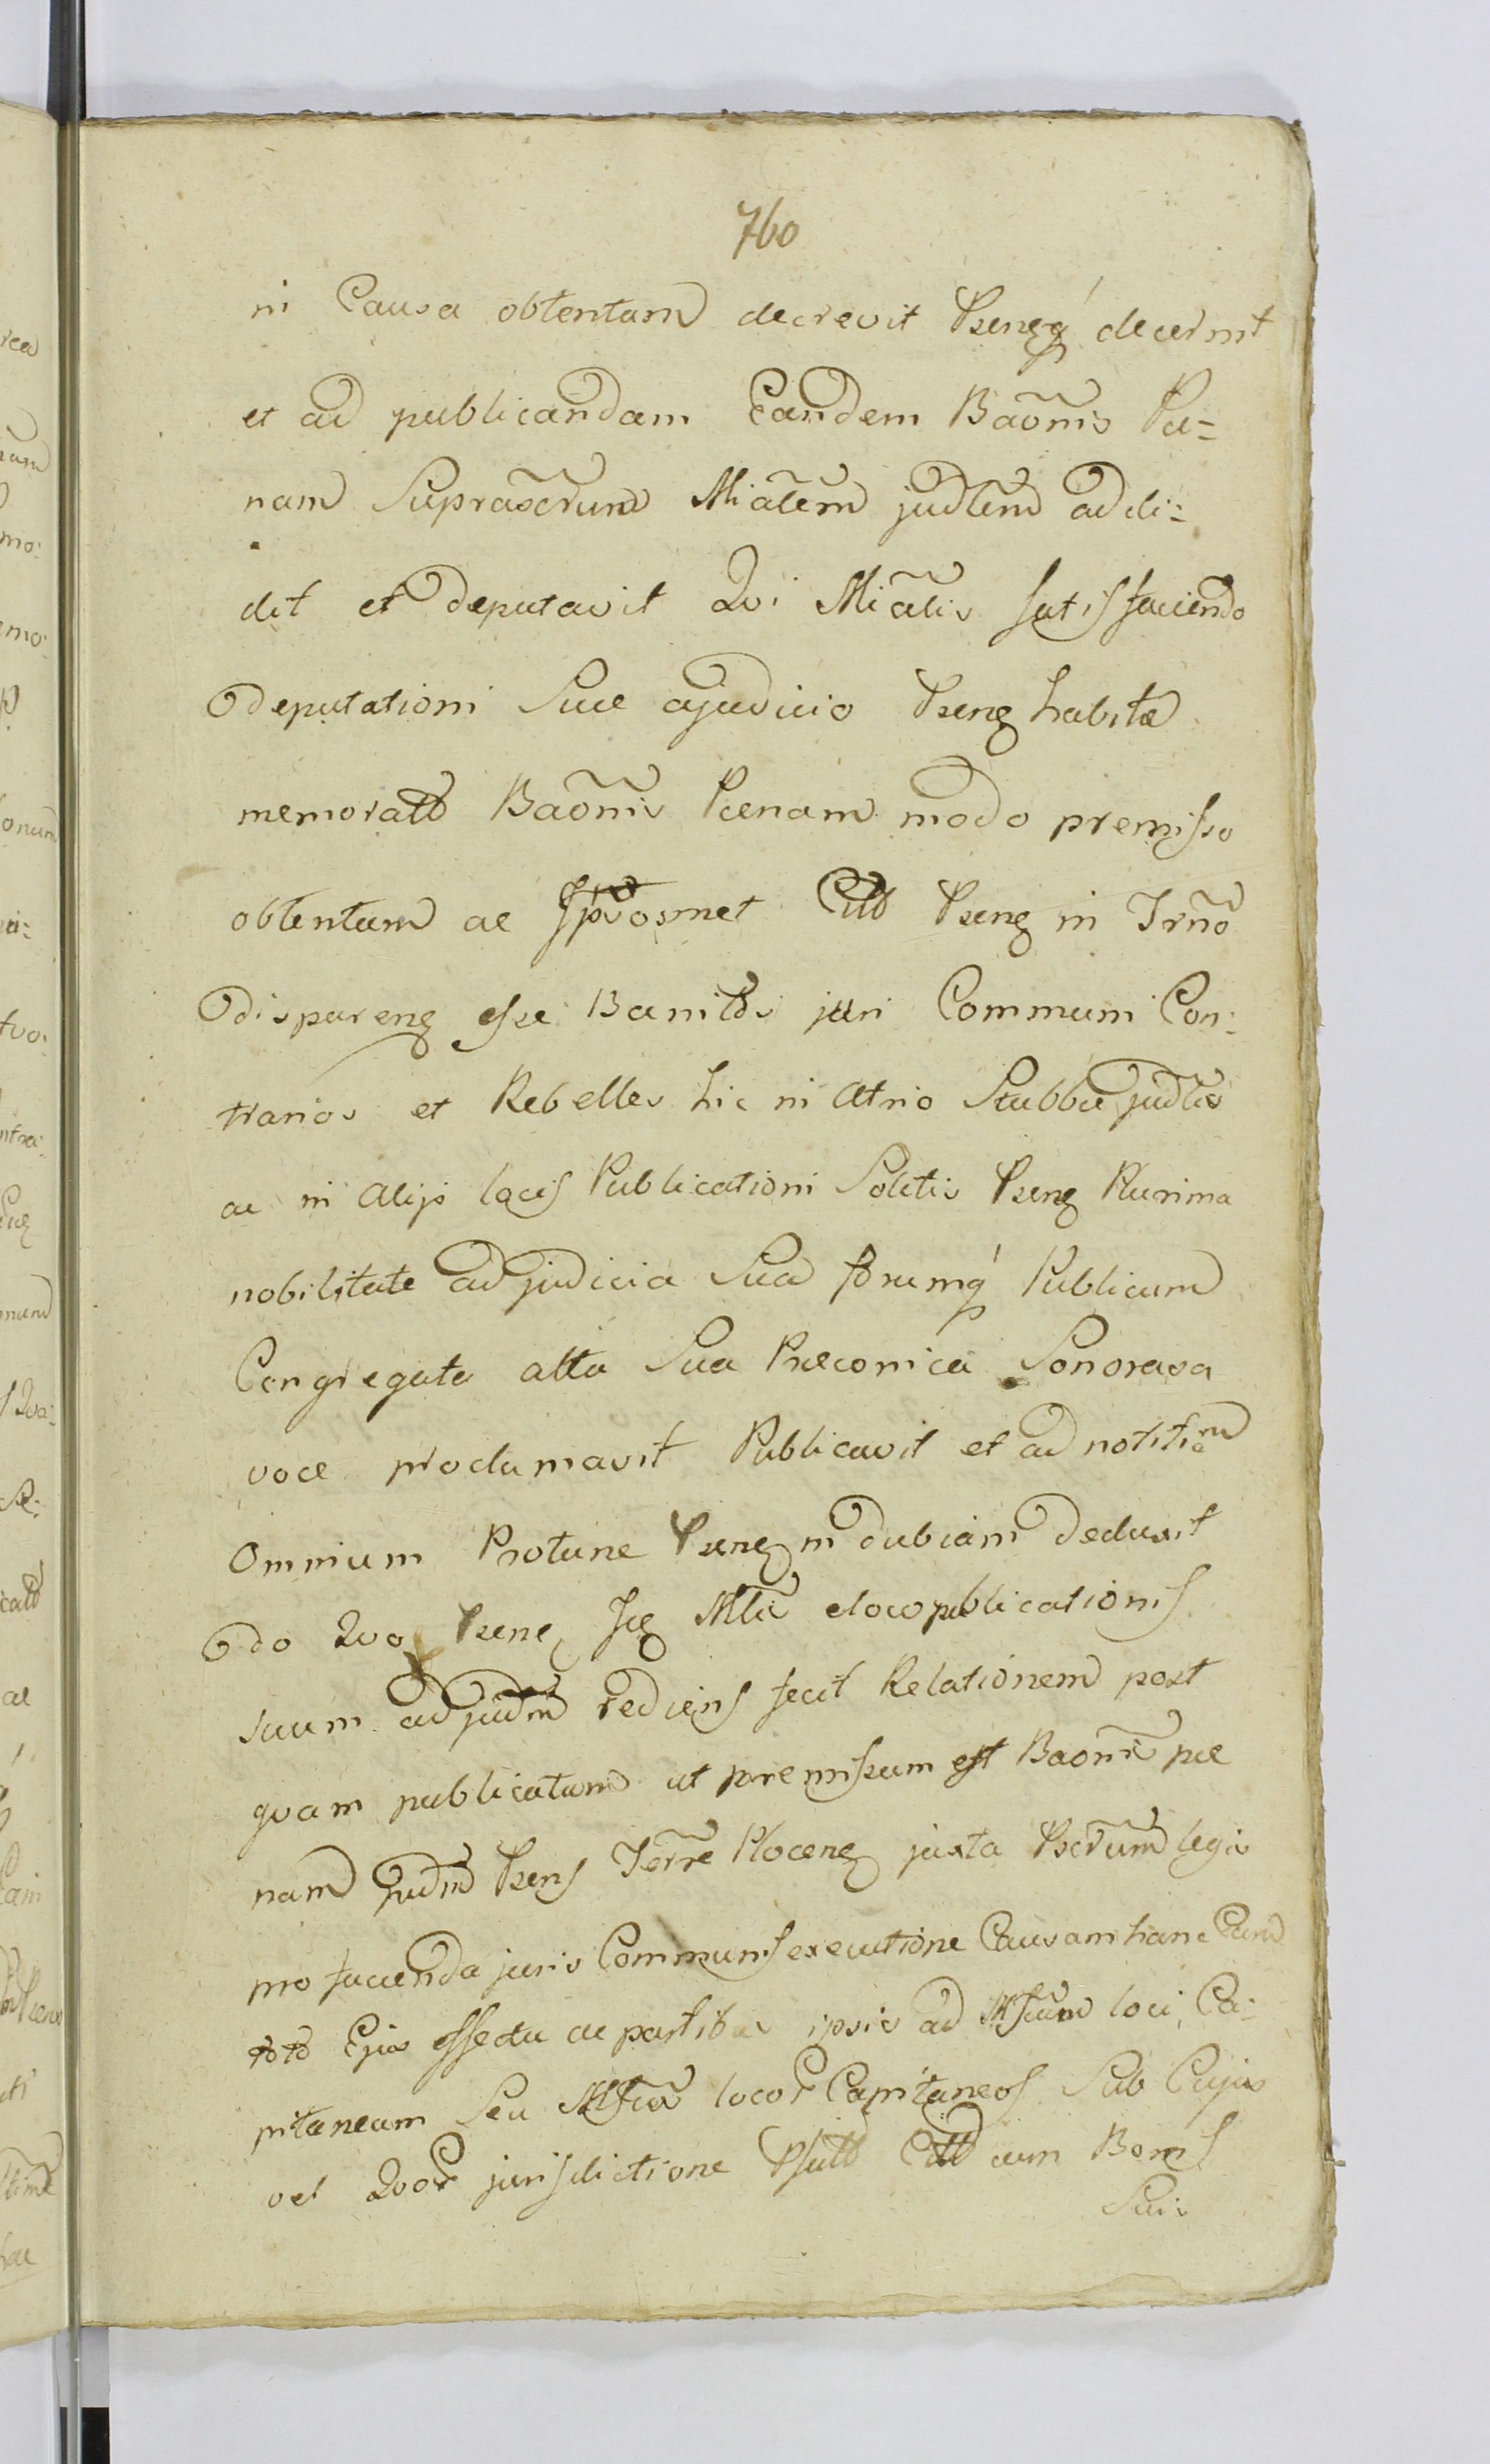 760
in Causa obtentam decrevit Pseneq́ decernit
et ad publicandam Eandem Baõnis Pæ=
nam Suprascrum Mialem judlem addi:
dit et deputavit Qvi Mialis satisfaciendo
deputationi Suæ ajudicio Pseng habitæ
memorato Baõnis Pænam modo premisso
obtentam ac Ipsosmet Citto Pseng in Trño
dispareng esse Banitos juri Communi Con:
trarios et Rebelles hic in Atrio Stubbæ judlis
ac in Alijs locis Publicationi Solitis Pseng Plurima
nobilitate ad judicia Sua forumq́ Publicum
Congregata alta Sua Præconica Sonoraqa
voce proclamavit Publicavit et ad notitiam
Omnium Protunc Pseng in dubiam deduxit
do Qvo Psene Mlis eloco publicationis
suum ad judm rediens fecit Relationem post
qvam publicatam ut premissum est Baõnis pæ
nam judm Psens Terræ Ploceng juxta Pscrum legis
pro facienda juris Communis executione Causam hanc Cum
toto Ejus effectu ac partibus ipsis ad loci Ca:
pitaneum Seu locor Capitaneos Sub Cujus
vel Qvor jurisdictione Citto cum Bonis
Suis